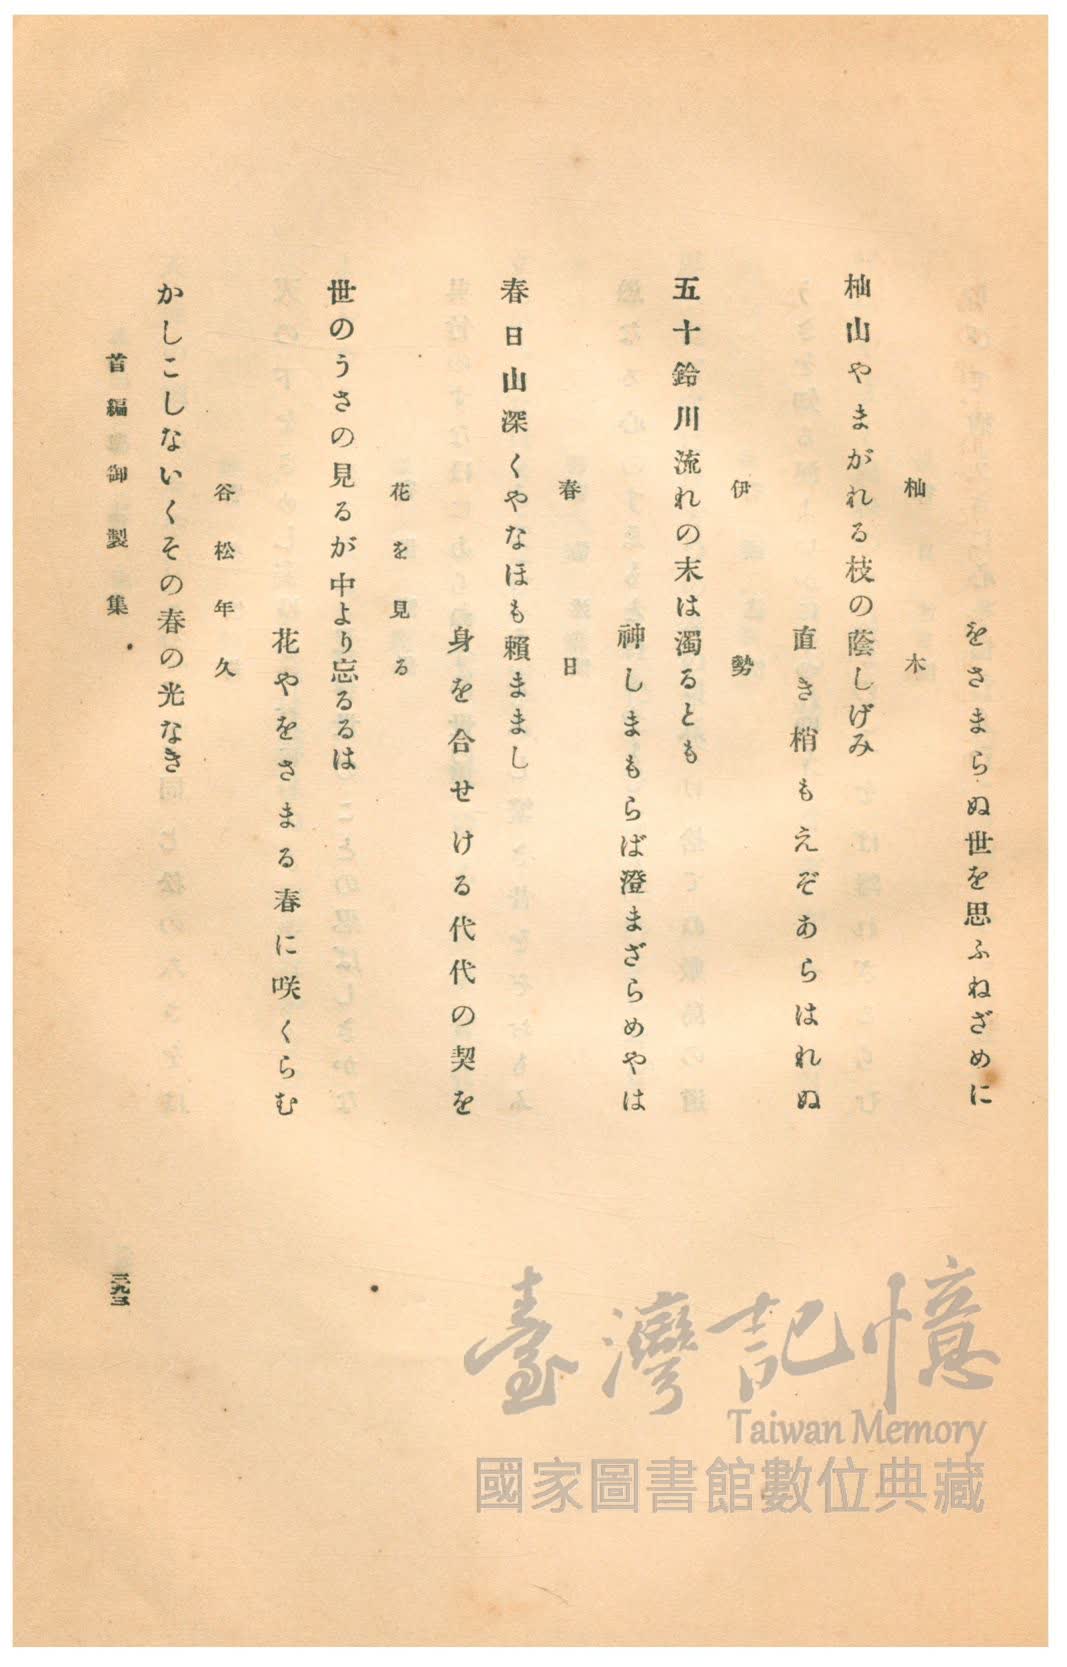 をさまらぬ世を思ふねざめに
杣木
杣山やまがれる枝の蔭しげみ
直き梢もえぞあらはれぬ
伊勢
五十鈴川流れの末は濁るとも
神しまもらば澄まざらめやは
春日
春日山深くやなほも賴ままし
身を合せける代代の契を
花を見る
世のうさの見るが中より忘るるは
花やをさまる春に咲くらむ
谷松年久
かしこしないくその春の光なき
首編御製集
三九三
臺灣記憶
Taiwan Memory
國家圖書館數位典藏